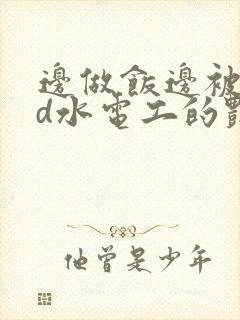 邊做飯邊被
d水電工的
他曾是少年